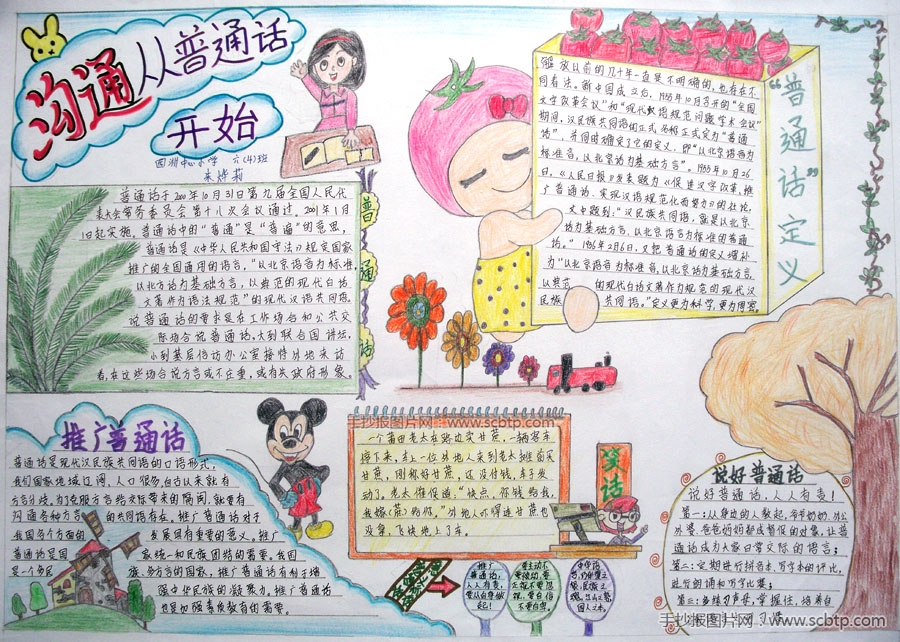 沟通从普通话
开始
四洲中心小学 六(4)班
朱诗莉
普通话于2000年10月31日第九届全国人民代
表大会常务委员会第十八次会议通过,2001年1月
1日起实施。普通话中的“普通”是“普遍”的意思。
普通话是《中华人民共和国宪法》规定国家
推广的全国通用的语言,“以北京语音为标准
以北方话为基础方言,以典范的现代白话
文著作为语法规范”的现代汉语共同语。
说普通话的要求是在工作场合和公共交
际场合说普通话,大到联合国讲坛,
小到基层信访办公室接待外地来访
者,在这些场合说方言或不庄重,或有失政府形象。
普通话
“普通话”定义
解放以前的几十年一直是不明确的,也存在不
同看法。新中国成立后,1955年10月召开的“全国
文字改革会议”和“现代汉语规范问题学术会议”
期间,汉民族共同语的正式名称正式定为“普通
话”,并同时确定了它的定义,即“以北京语音为
标准音,以北京话为基础方言”。1955年10月26
日,《人民日报》发表题为《促进文字改革、推
广普通话、实现汉语规范化而努力》的社论,
文中提到:“汉民族共同语,就是以北京
话为基础方言、以北京语音为标准的普通
话。”1956年2月6日,又把普通话的定义增补
为“以北京语音为标准音,以北京话为基础方言,
以典范的现代白话文著作为规范的现代汉
民族共同语。”定义更为科学,更为周密。
推广普通话
普通话是现代汉民族共同语的口语形式,
我们国家地域辽阔,人口很多,自古以来就有
方言分歧,为了克服方言给交际带来的隔阂,就要有
沟通各种方言的共同语存在。推广普通话对于
我国各个方面的发展具有重要的意义。推广
普通话是国家统一和民族团结的需要。我国
是一个多民族、多方言的国家,推广普通话有利于增
强中华民族的凝聚力。推广普通话
也是加强素质教育的需要。
笑话
一个莆田老太在路边卖甘蔗,一辆客车
停下来,车上一位外地人来到老太摊前买
甘蔗,刚称好甘蔗,还没付钱,车子发
动了,老太婆催道:“快点,你钱给我,
我嫁(蔗)给你。”外地人吓得连甘蔗也
没拿,飞快地上了车。
推广
普通话,
人人有责,
要从自身做
起!
说好普通话
说好普通话,人人有责!
第一:从身边的人做起,爷爷奶奶、外公
外婆、爸爸妈妈都成督促的对象,让普
通话成为大家日常交际的语言;
第二:定期进行拼音本、写字本的评比,
进行朗诵和写字比赛;
第三:多练习声母,掌握住,培养自
手抄报图片网-www.scbtp.com
手抄报图片网-www.scbtp.com